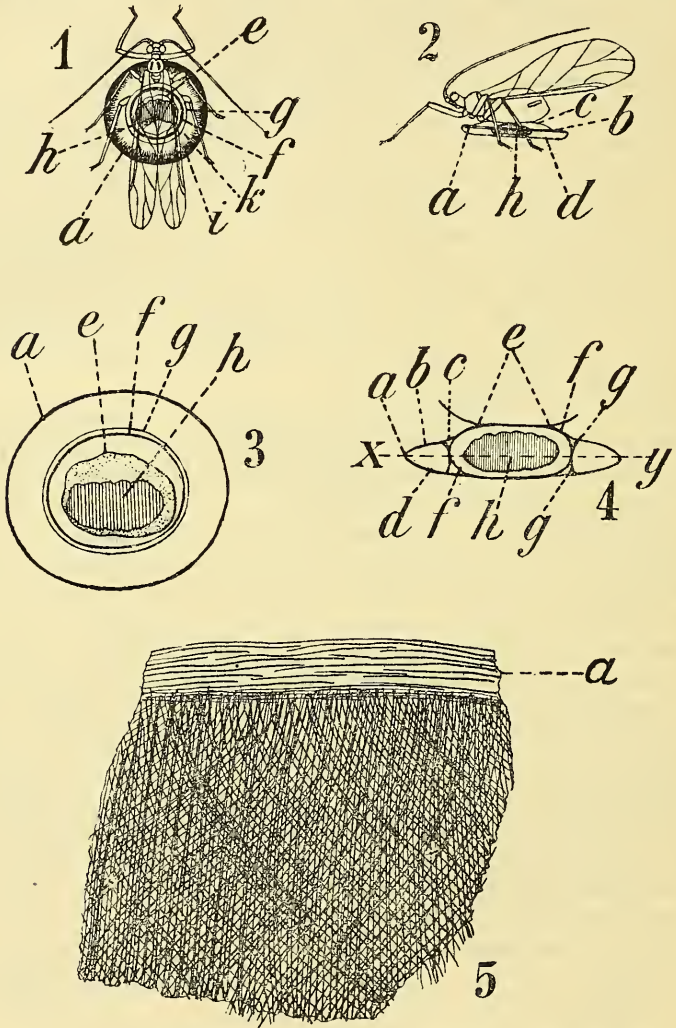 1
e
g
h
f
a
i
k
2
c
b
a
h
d
a
e
f
g
h
3
a
b
c
e
f
g
x
y
d
f
h
g
4
a
5